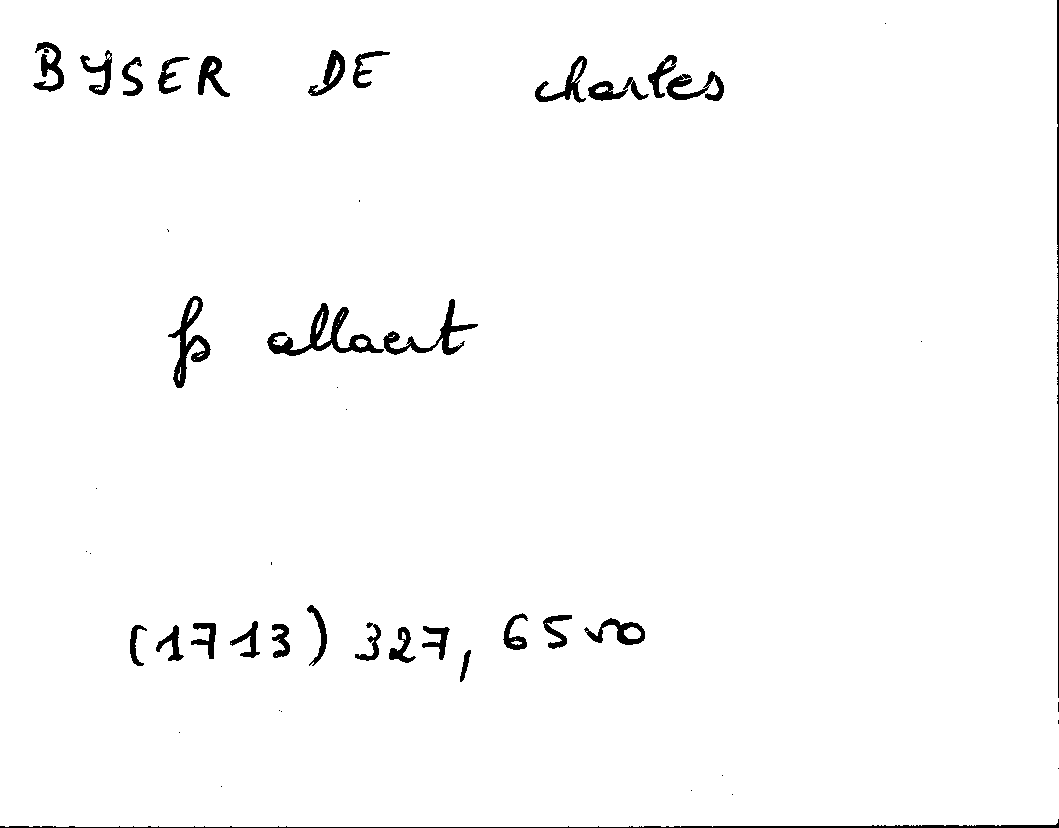 BYSER DE charles
fs allaert
(1713) 327, 65 vo